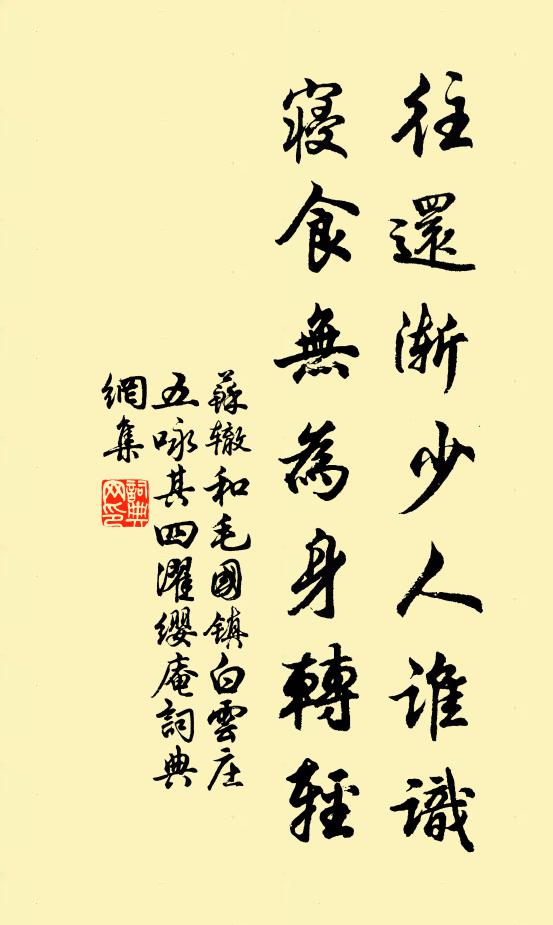 往還漸少人誰識
寢食無為身轉輕
蘇轍和毛國鎮白雲庄
五咏其四濯纓庵詞典
網集
詞典
网印